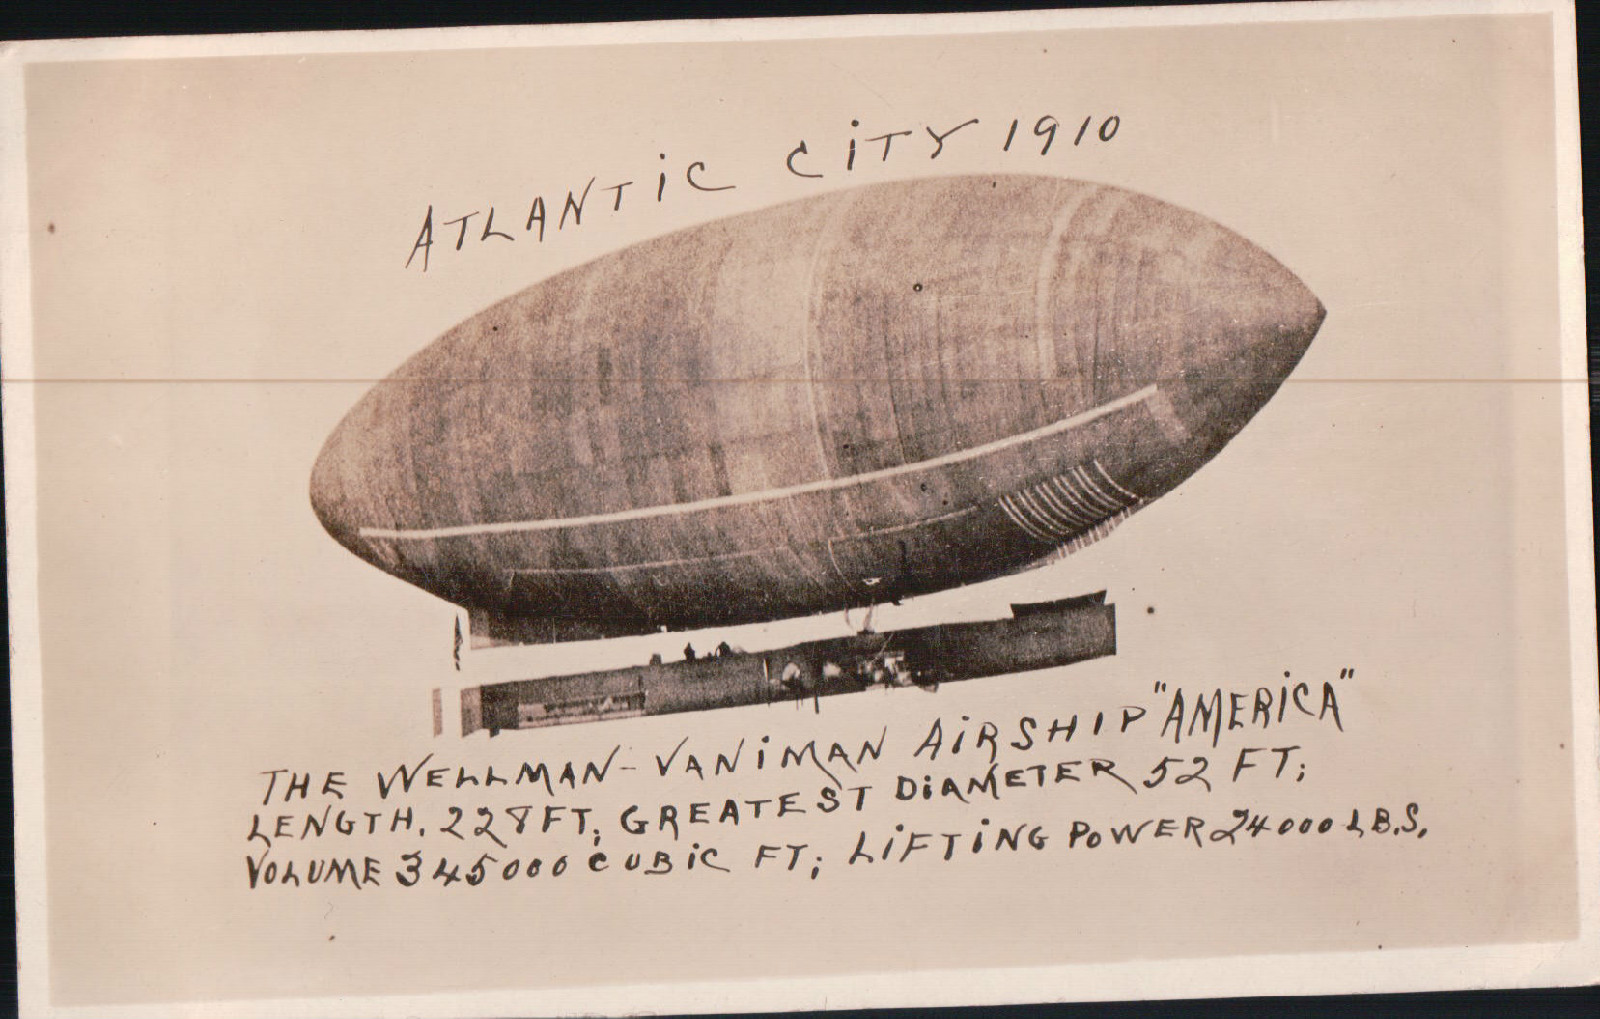 ATLANTIC CITY 1910
THE WELLMAN-VANIMAN AIRSHIP "AMERICA"
LENGTH. 228 FT; GREATEST DIAMETER 52 FT;
VOLUME 345000 CUBIC FT; LIFTING POWER 24000 LB.S.